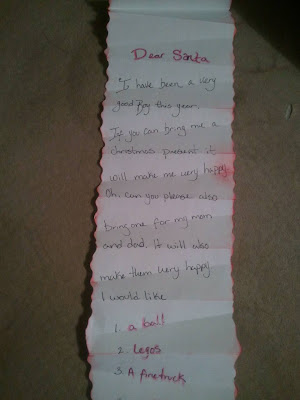 Dear Santa
I have been a very
good Boy this year.
If you can bring me a
christmas present it
will make me very happy.
Oh, can you please also
bring one for my mom
and dad. It will also
make them very happy
I would like
1. a ball
2. Legos
3. A firetruck